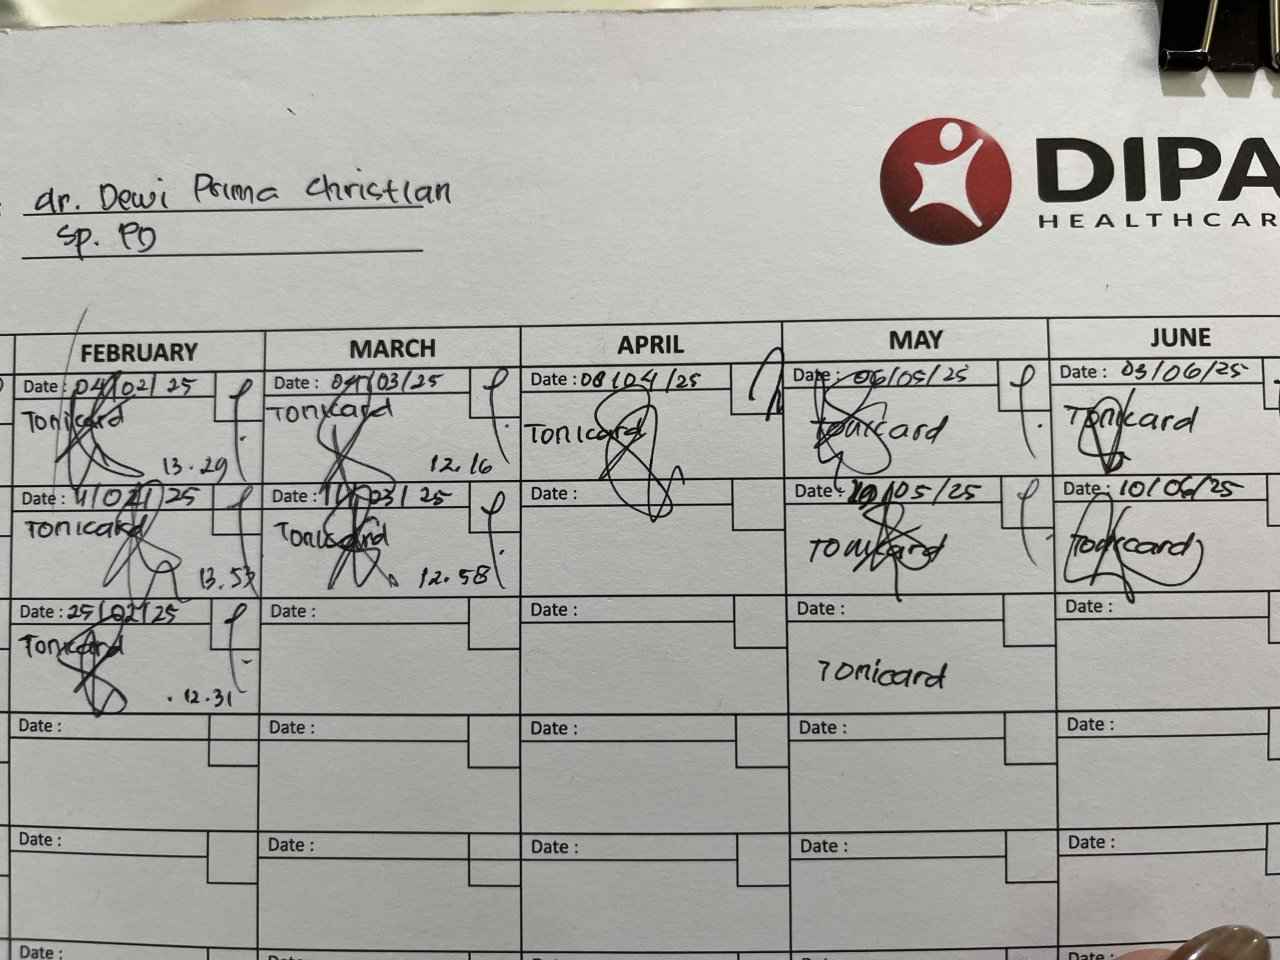 dr. Dewi Prima Christian
Sp. PD
DIPA
HEALTHCAR
FEBRUARY MARCH APRIL MAY JUNE
Date : 04/02/25 Date : 04/03/25 Date : 08/04/25 Date : 06/05/25 03/06/25
Tonicard Tonicard Tonicard Tonicard Tonicard
13.29 12.16
Date : 11/02/25 Date : 11/03/25 Date : Date : /05/25 Date : 10/06/25
Tonicard Tonicard Tonicard Tonicard
13.53 12.58
Date : 25/02/25 Date : Date : Date : Date :
Tonicard Tonicard
12.31
Date : Date : Date : Date : Date :
Date : Date : Date : Date : Date :
Date : Date : Date : Date : Date :